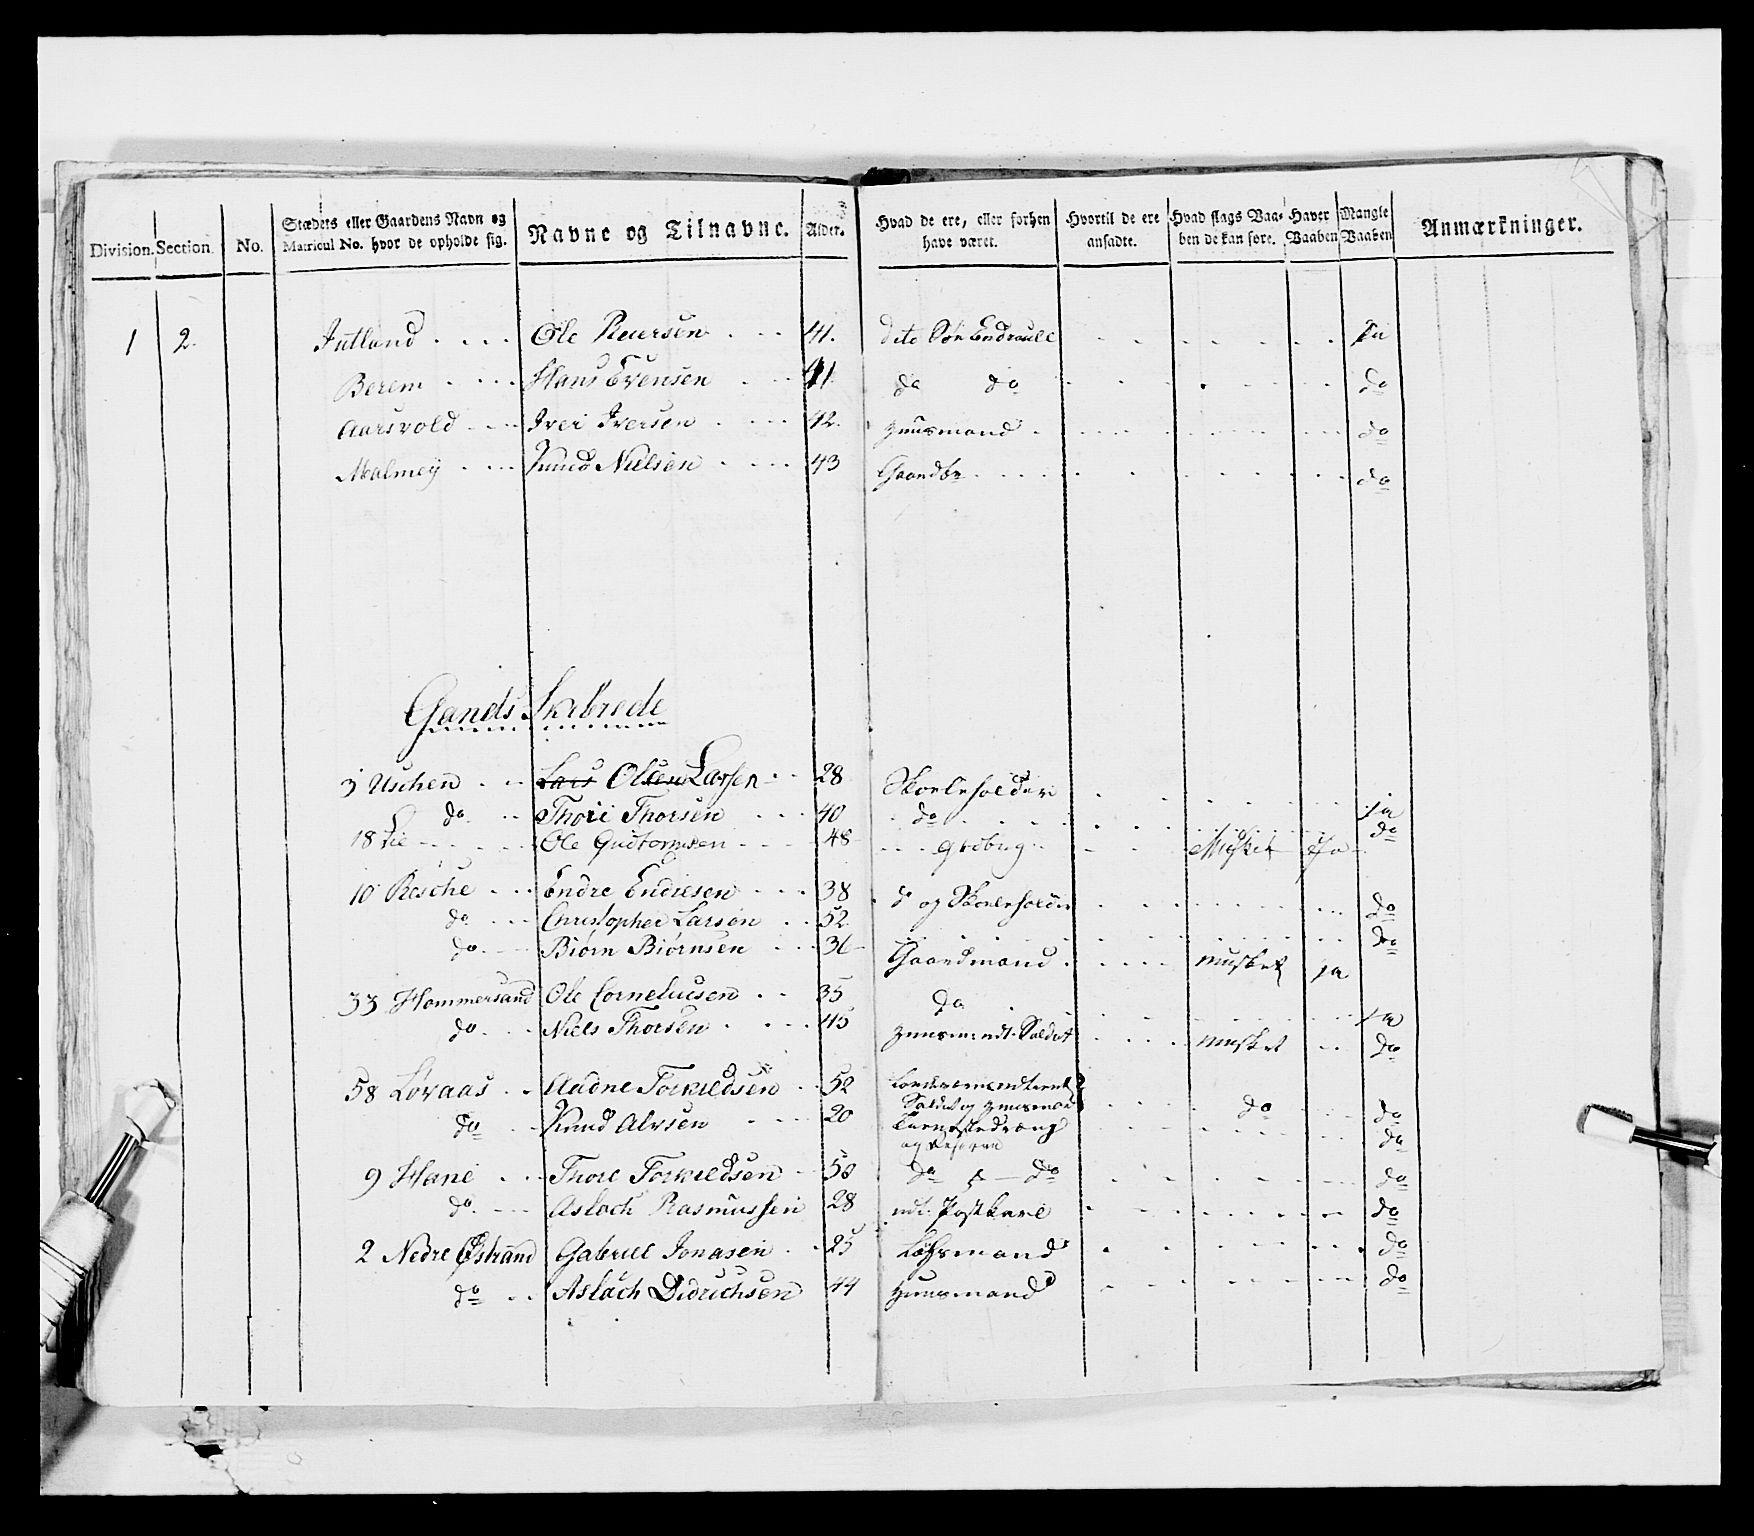 Division. Section. No. Stædets eller Gaardens Navn og Matricul No. hvor de opholde sig. Navne og Tilnavne. Alder. Hvad de ere, eller forhen have været. Hvortil de ere ansadte. Hvad slags Vaaben de kan føre. Haver Vaaben Mangle Vaaben Anmærkninger.
1 2. Jutland Ole 41. dito Ja
Berem Hans Evensen 41 do do do
Aarsvold Iver Iversen 42. Huusmand do
Malmeÿ Knud Nielsen 43 Gaardbr do
Gands Skibrede
3 Uschen Lars Olsen Larsen 28 Skoleholder ja
do Thore Thorsen 40 do do
18 Lie Ole Gudtormsen 48 Musket Ja
10 Rosche Endre Endresen 38 d og Skoleholder do
do Christopher Larsen 52 do
do Biørn Biørnsen 36 Gaardmand musket ja
33 Hommersand Ole Corneliusen 35 do ja
do Niels Thorsen 45 Huusm udt. Soldat musket do
58 Løvaas Aadne Torkildsen 52 Soldat og Huusmand do do
do Knud Alvsen 20 Tienestedreng og do
9 Hane Thore Torkildsen 50 do & do do
do Asloch Rasmussen 28 udt. Postkarl do
2 Nedre Østrand Gabriel Jonasen 25 Løssmand do
do Asloch Didrichsen 44 Huusmand do